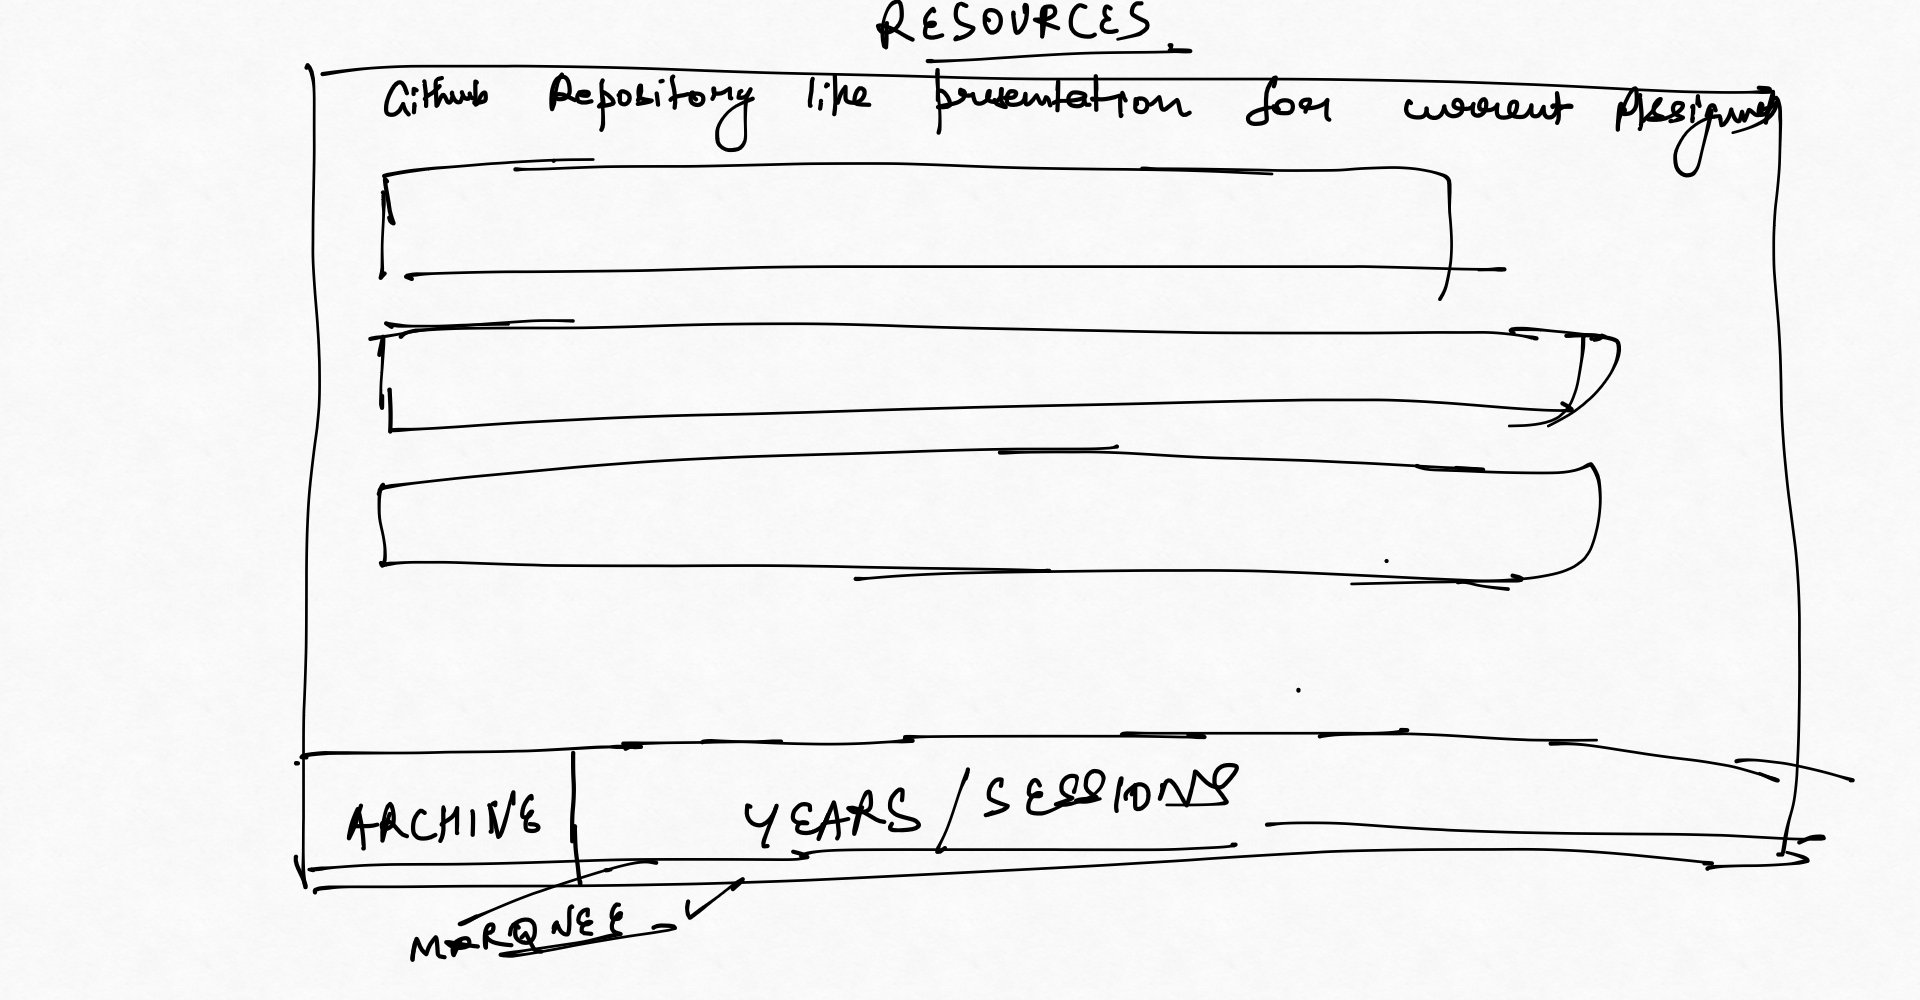 RESOURCES
Github Repository like presentation for current Assignmt
ARCHIVE
YEARS/SESSIONS
MARQUEE